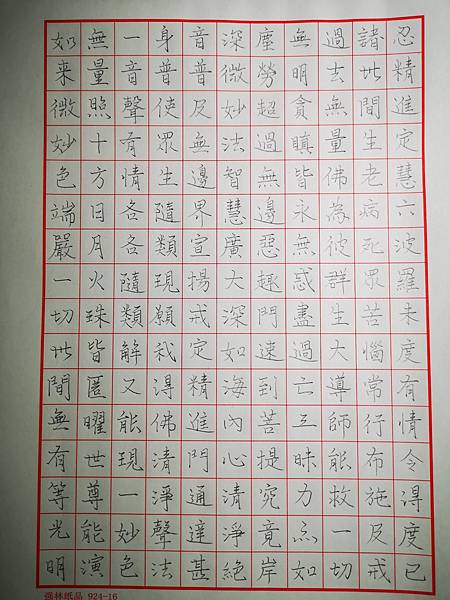 如来微妙色端嚴一切世間無有等光明
無量照十方日月火珠皆匿曜世尊能演
一音聲有情各各隨類解又能現一妙色
身普使眾生隨類現願我得佛清淨聲法
音普及無邊界宣揚戒定精進門通達甚
深微妙法智慧廣大深如海內心清淨絕
塵勞超過無邊惡趣門速到菩提究竟岸
無明貪瞋皆永無惑盡過亡三昧力亦如
過去無量佛為彼群生大導師能救一切
諸世間生老病死眾苦惱常行布施及戒
忍精進定慧六波羅未度有情令得度已
强林纸品 924-16